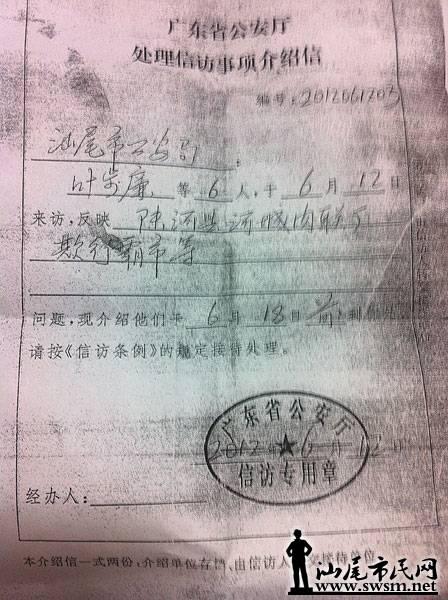 广东省公安厅
处理信访事项介绍信
编号:2012061203
汕尾市公安局:
叶安廉 等 6 人,于 6 月 12 日
来访,反映 陆河县河城肉联厂
欺行霸市等
问题,现介绍他们于 6 月 18 日 前到你处,
请按《信访条例》的规定接待处理。
广东省公安厅
2012 年 6 月 12 日
信访专用章
经办人:
本介绍信一式两份,介绍单位存档,由信访人 交接待单位
汕尾市民网
www.swsm.net